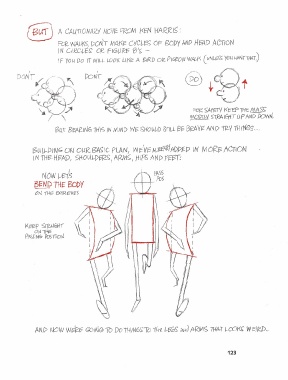 BUT
A CAUTIONARY NOTE FROM KEN HARRIS:
FOR WALKS DON'T MAKE CYCLES OF BODY AND HEAD ACTION
IN CIRCLES OR FIGURE 8's —
IF YOU DO IT WILL LOOK LIKE A BIRD OR PIGEON WALK (UNLESS YOU WANT THAT)
DON'T
DON'T
DO
FOR SAFETY KEEP THE MASS
MOSTLY STRAIGHT UP AND DOWN
BUT BEARING THIS IN MIND WE SHOULD STILL BE BRAVE AND TRY THINGS...
BUILDING ON OUR BASIC PLAN, WE'VE ADDED IN MORE ACTION
IN THE HEAD, SHOULDERS, ARMS, HIPS AND FEET:
NOW LET'S
BEND THE BODY
ON THE EXTREMES
PASS
POS
KEEP STRAIGHT
ON THE
PASSING POSITION
AND NOW WE'RE GOING TO DO THINGS TO THE LEGS and ARMS THAT LOOKS WEIRD..
123